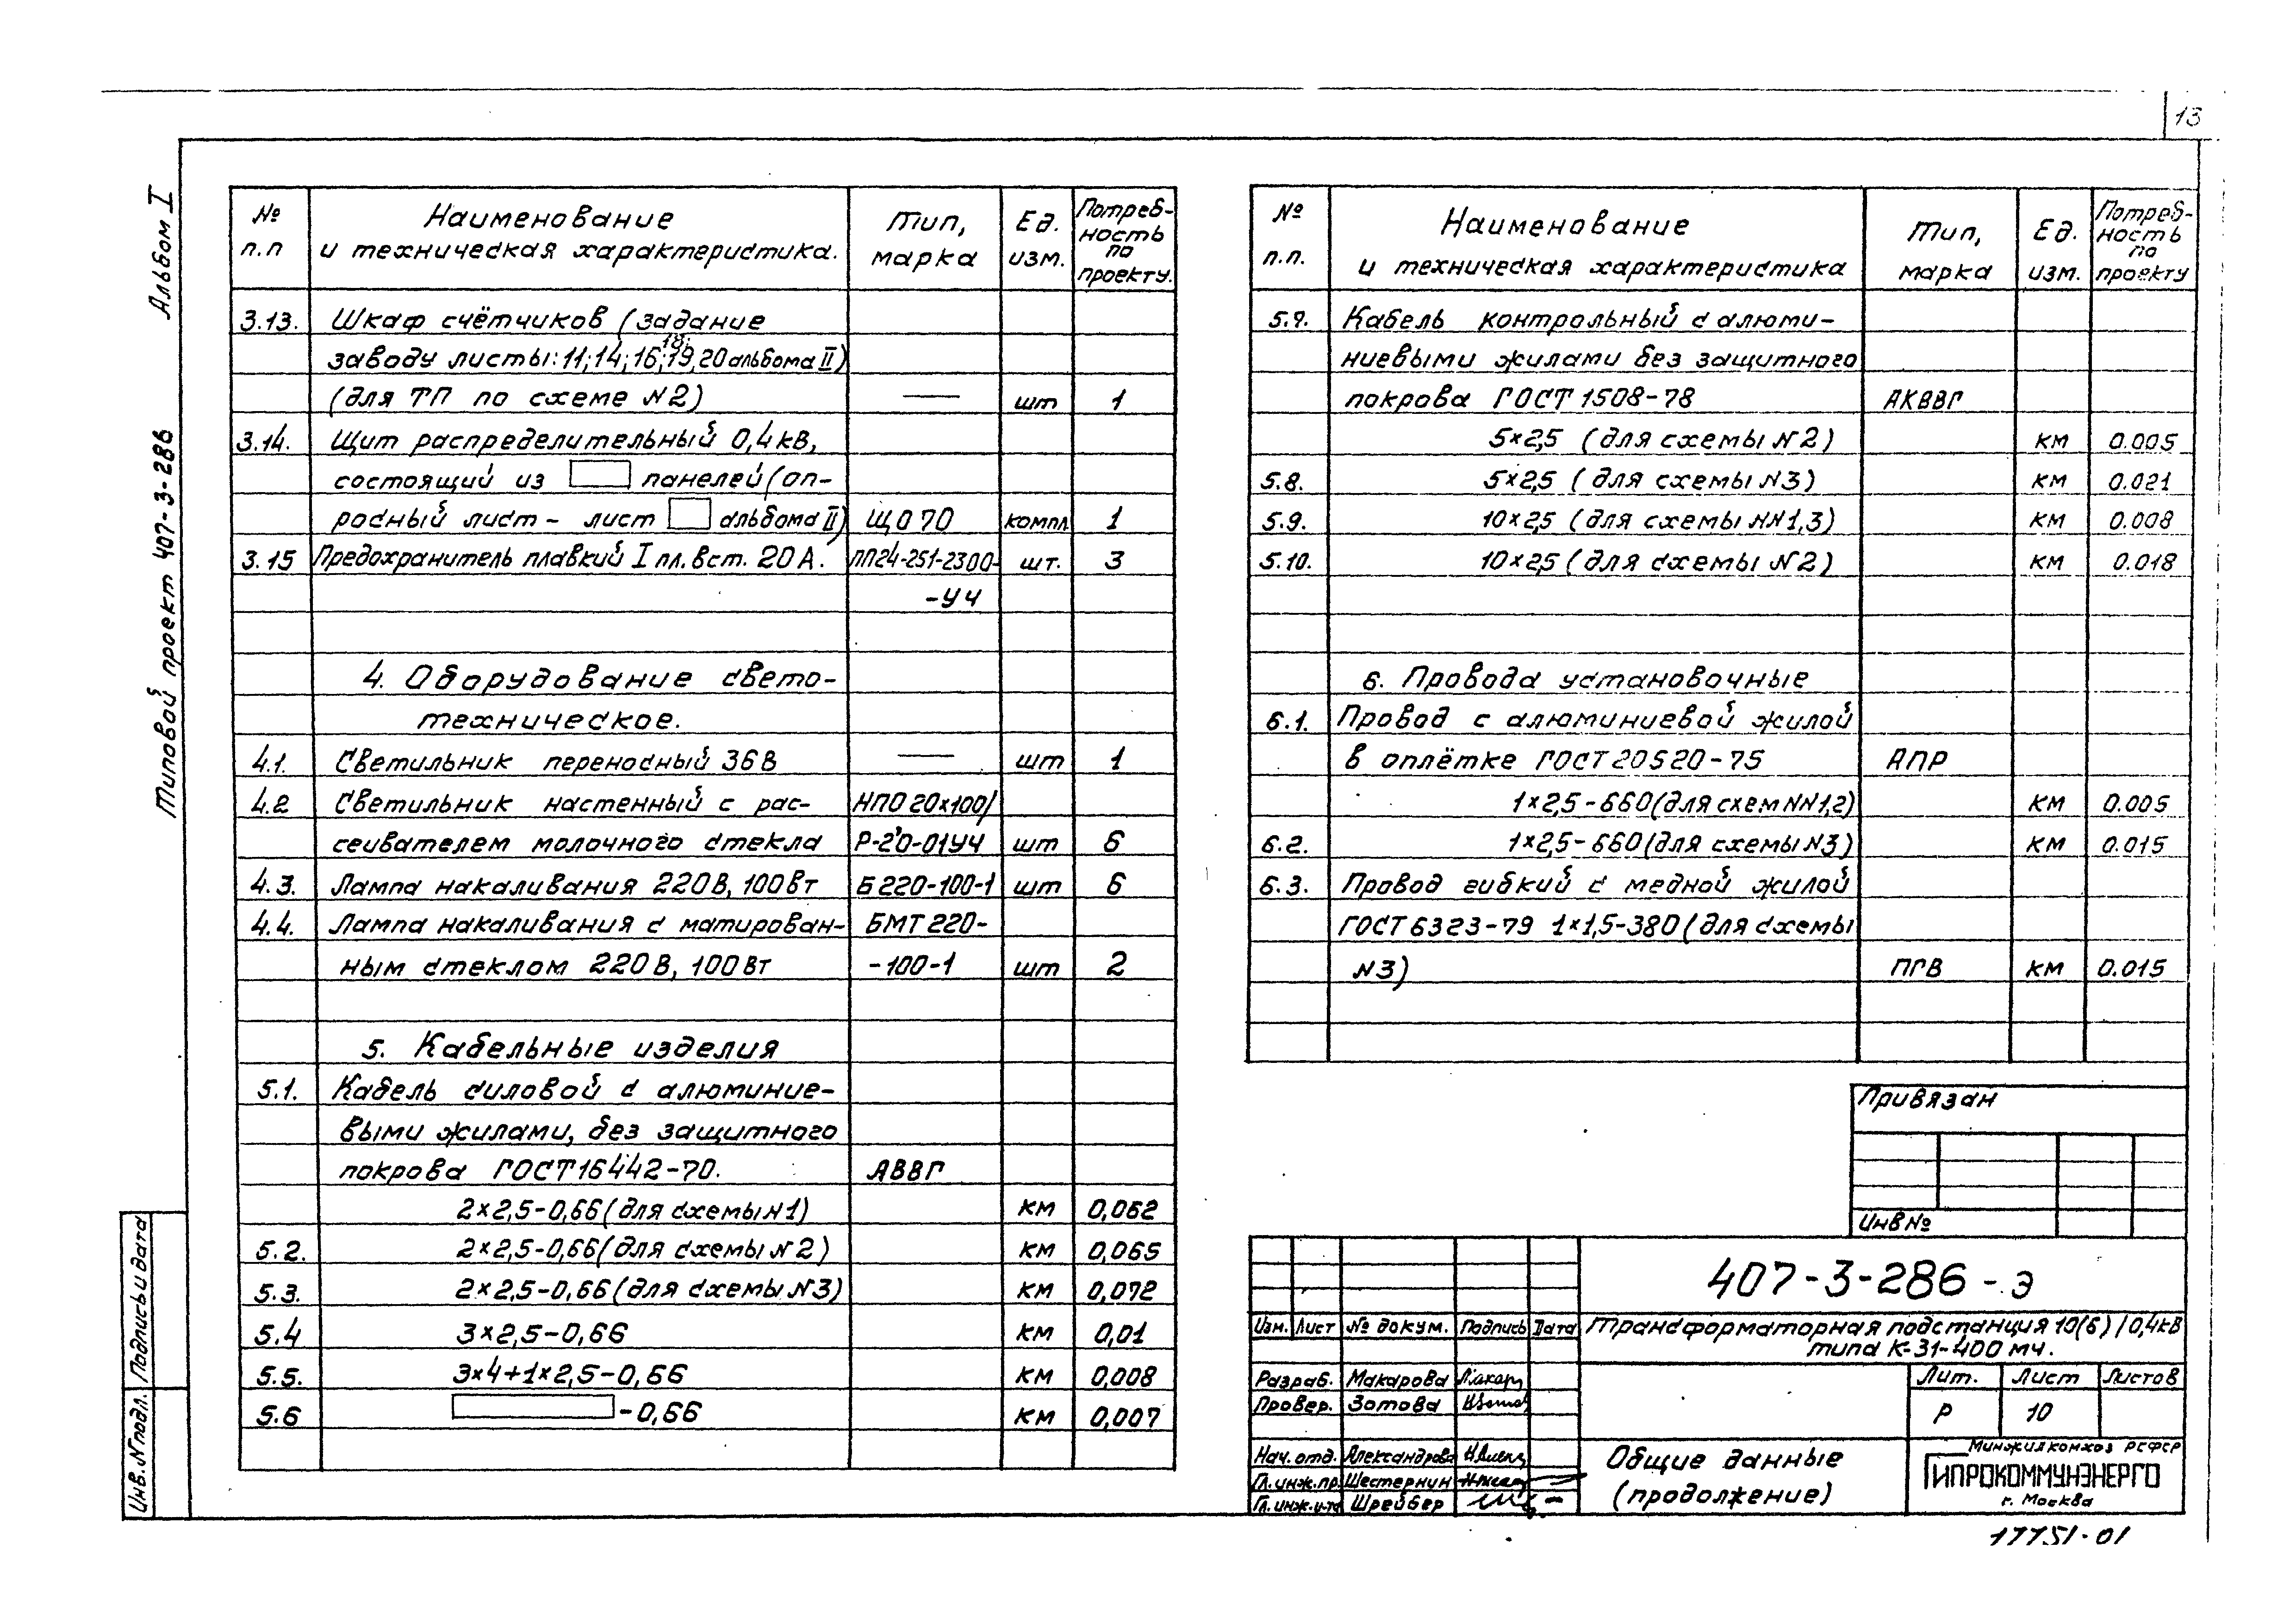 13
Альбом I
Типовой проект 407-3-286
№ п.п
Наименование и техническая характеристика.
Тип, марка
Ед. изм.
Потреб-ность по проекту.
3.13. Шкаф счётчиков (задание
18;
заводу листы: 11; 14; 16; 19, 20 альбома II)
(для ТП по схеме N2) — шт 1
3.14. Щит распределительный 0,4кв,
состоящий из панелей (оп-
росный лист - лист альбома II) ЩО70 компл 1
3.15 Предохранитель плавкий I пл. вст. 20А. ПП24-251-2300- шт. 3
-У4
4. Оборудование свето-
техническое.
4.1. Светильник переносный 36В — шт 1
4.2 Светильник настенный с рас- НПО 20х100/
сеивателем молочного стекла Р-2'0-01У4 шт 6
4.3. Лампа накаливания 220В, 100Вт Б220-100-1 шт 6
4.4. Лампа накаливания с матирован- БМТ 220-
ным стеклом 220В, 100Вт -100-1 шт 2
5. Кабельные изделия
5.1. Кабель силовой с алюминие-
выми жилами, без защитного
покрова ГОСТ 16442-70. АВВГ
2×2,5-0,66 (для схемы N1) км 0,062
5.2. 2×2,5-0,66 (для схемы N2) км 0,065
5.3. 2×2,5-0,66 (для схемы N3) км 0,072
5.4 3×2,5-0,66 км 0,01
5.5. 3×4+1×2,5-0,66 км 0,008
5.6 -0,66 км 0,007
№ п.п.
Наименование и техническая характеристика
Тип, марка
Ед. изм.
Потреб-ность по проекту
5.7. Кабель контрольный с алюми-
ниевыми жилами без защитного
покрова ГОСТ 1508-78 АКВВГ
5×2,5 (для схемы N2) км 0.005
5.8. 5×2,5 (для схемы N3) км 0.021
5.9. 10×2,5 (для схемы NN1,3) км 0.008
5.10. 10×2,5 (для схемы N2) км 0.018
6. Провода установочные
6.1. Провод с алюминиевой жилой
в оплётке ГОСТ 20520-75 АПР
1×2,5-660 (для схем NN1,2) км 0.005
6.2. 1×2,5-660 (для схемы N3) км 0.015
6.3. Провод гибкий с медной жилой
ГОСТ 6323-79 1×1,5-380 (для схемы
N3) ПГВ км 0.015
Привязан
Инв №
407-3-286-Э
Изм. Лист № докум. Подпись Дата
Трансформаторная подстанция 10(6)/0,4кВ
типа К-31-400 м4.
Разраб. Макарова
Провер. Зотова
Нач. отд. Александрова
Гл. инж. пр. Шестернин
Гл. инж. и-та Шрейбер
Лит. Лист Листов
Р 10
Общие данные
(продолжение)
Минжилкомхоз РСФСР
ГИПРОКОММУНЭНЕРГО
г. Москва
Подпись и дата
Инв. N подл.
17751-01